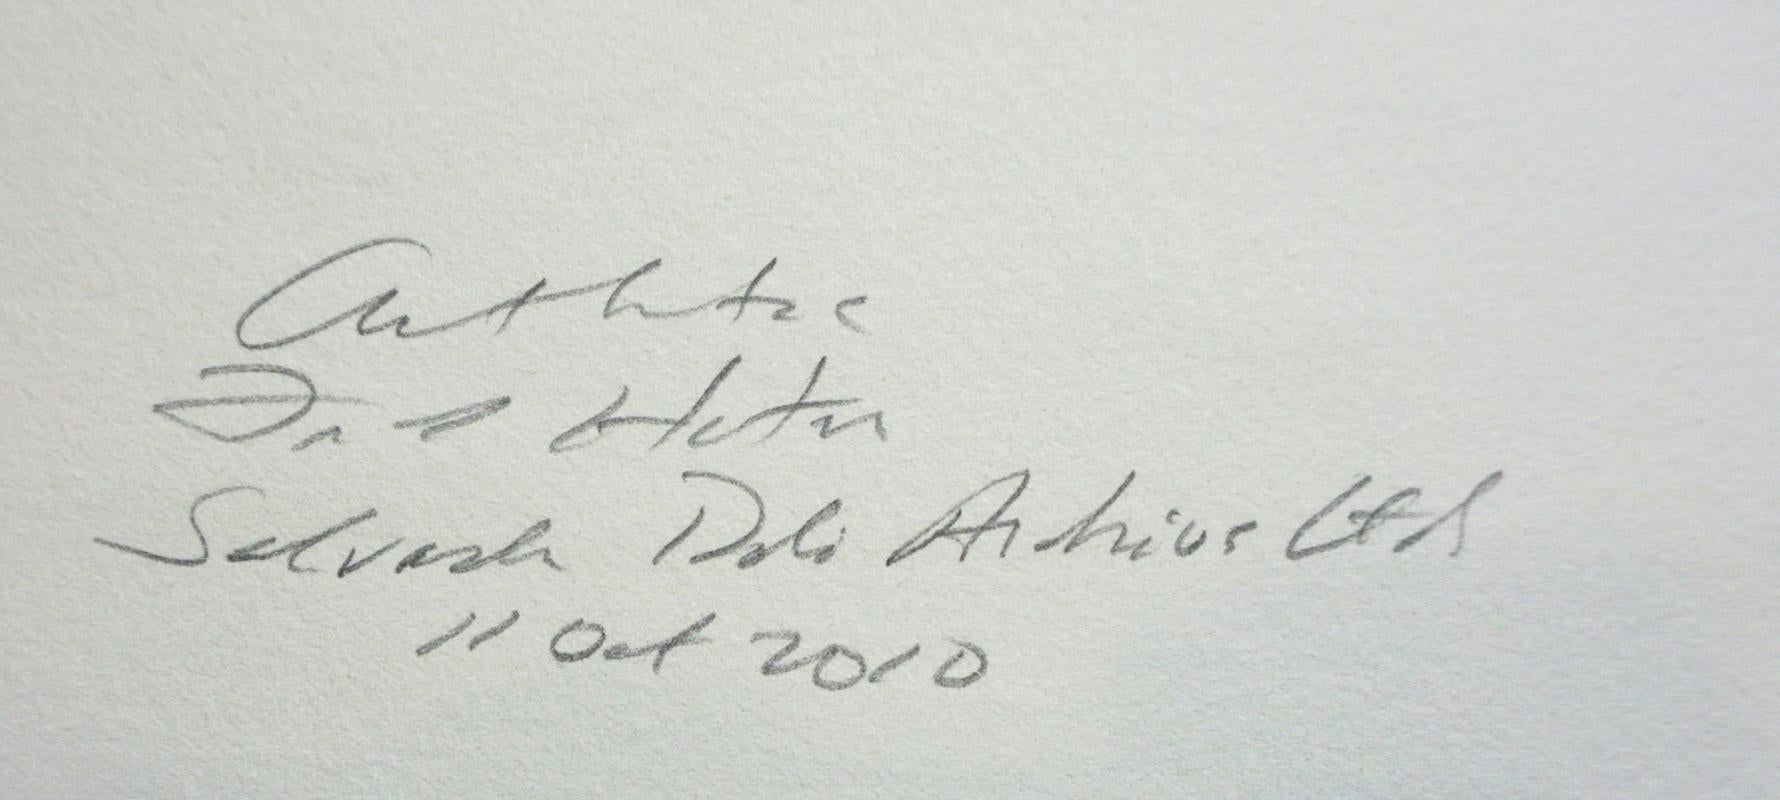 Authentic
Frank Hunter
Salvador Dali Archives Ltd
11 Oct 2010